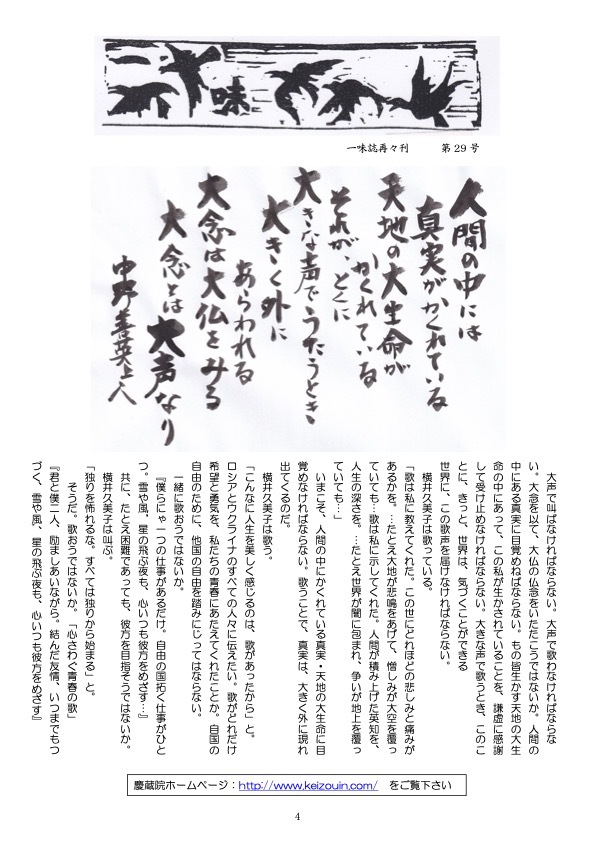 一味
一味誌再々刊　第29号
人間の中には
真実がかくれている
天地の大生命が
かくれている
それが、とくに
大きな声でうたうとき
大きく外に
あらわれる
大念は大仏をみる
大念とは大声なり
中野善英上人
大声で叫ばなければならない。大声で歌わなければならな
い。大念を以て、大仏の仏念をいただこうではないか。人間の
中にある真実に目覚めねばならない。もの皆生かす天地の大生
命の中にあって、この私が生かされていることを、謙虚に感謝
して受け止めなければならない。大きな声で歌うとき、このこ
とに、きっと、世界は、気づくことができる
世界に、この歌声を届けなければならない。
横井久美子は歌っている。
「歌は私に教えてくれた。この世にどれほどの悲しみと痛みが
あるかを。…たとえ大地が悲鳴をあげて、憎しみが大空を覆っ
ていても…歌は私に示してくれた。人間が積み上げた英知を、
人生の深さを、…たとえ世界が闇に包まれ、争いが地上を覆っ
ていても…」
いまこそ、人間の中にかくれている真実・天地の大生命に目
覚めなければならない。歌うことで、真実は、大きく外に現れ
出てくるのだ。
横井久美子は歌う。
「こんなに人生を美しく感じるのは、歌があったから」と。
ロシアとウクライナのすべての人々に伝えたい。歌がどれだけ
希望と勇気を、私たちの青春にあたえてくれたことか。自国の
自由のために、他国の自由を踏みにじってはならない。
一緒に歌おうではないか。
『僕らにゃ一つの仕事があるだけ。自由の国拓く仕事がひと
つ。雪や風、星の飛ぶ夜も、心いつも彼方をめざす…』
共に、たとえ困難であっても、彼方を目指そうではないか。
横井久美子は叫ぶ。
「独りを怖れるな。すべては独りから始まる」と。
そうだ。歌おうではないか。「心さわぐ青春の歌」
『君と僕二人、励ましあいながら。結んだ友情、いつまでもつ
づく、雪や風、星の飛ぶ夜も、心いつも彼方をめざす』
慶蔵院ホームページ：http://www.keizouin.com/　をご覧下さい
4